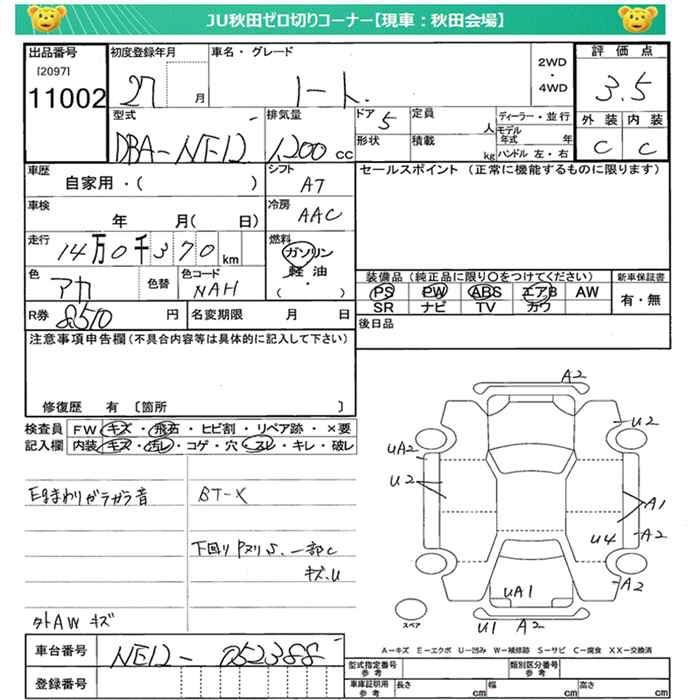 JU秋田ゼロ切りコーナー【現車：秋田会場】
出品番号 初度登録年月 車名・グレード 2WD ・ 4WD 評価点
[2097]
11002 27 月 ノート. 3.5
型式 排気量 ドア 5 定員 人 ディーラー・並行 外装 内装
DBA-NE12 1,200 cc 形状 積載 kg モデル年式 年 ハンドル 左・右 C C
車歴 シフト セールスポイント（正常に機能するものに限ります）
自家用・（ ） AT
車検 冷房
年 月（ 日） AAC
走行 燃料
14万0千370km ガソリン
軽油
・
（ ）
色 アカ 色替 色コード NAH
装備品（純正品に限り○をつけてください） 新車保証書
PS PW ABS エアB AW 有・無
SR ナビ TV カワ
R券 8510 円 名変期限 月 日 後日品
注意事項申告欄（不具合内容等は具体的に記入して下さい）
修復歴 有 〔箇所 〕
検査員 FW キズ・飛石・ヒビ割・リペア跡・×要
記入欄 内装 キズ・汚レ・コゲ・穴・スレ・キレ・破レ
Egまわりガラガラ音 BT-X
下回りPヌリS、一部C
キズ.U
外AW キズ
A2
U2
UA2
U2
A1
U4 A2
UA1 A2
U1 A2
スペア
A－キズ E－エクボ U－凹み W－補修跡 S－サビ C－腐食 XX－交換済
車台番号 NE12-052388
登録番号
型式指定番号 参考 類別区分番号 参考
車庫証明用 参考 長さ cm 幅 cm 高さ cm